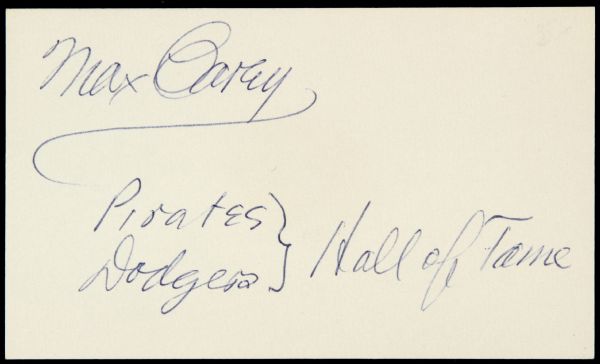 Max Carey
Pirates
Dodgers } Hall of Fame